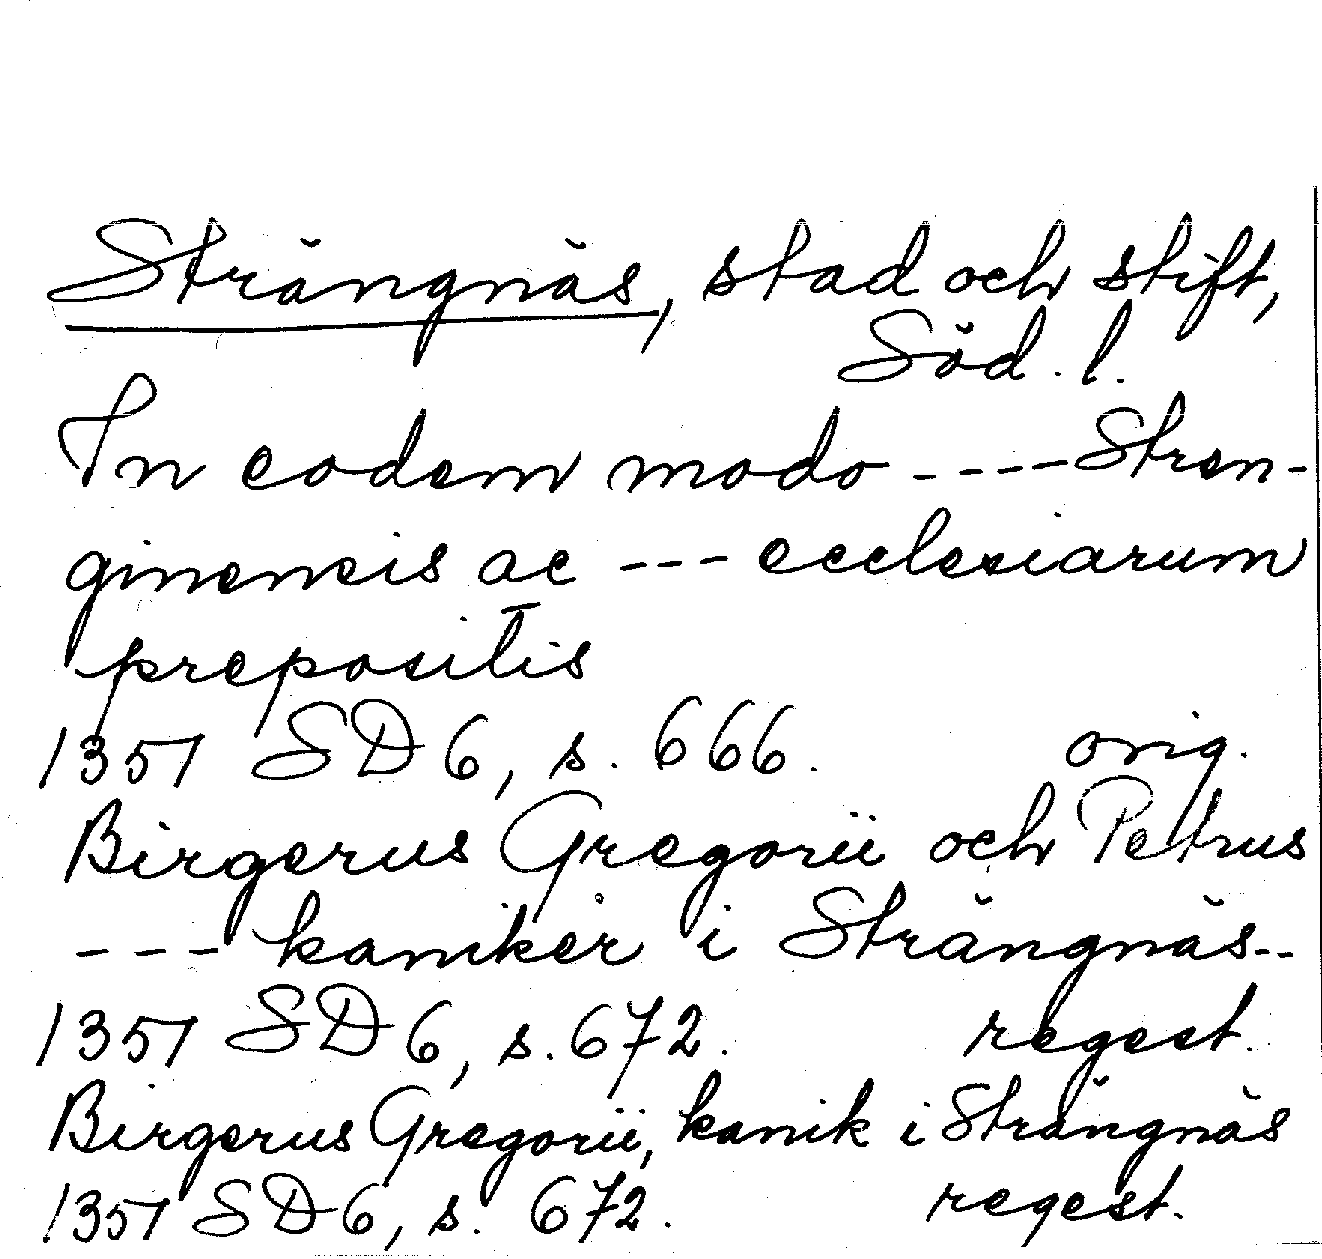 Strängnäs, stad och stift,
Söd. l.
In eodem modo ---- Stren-
ginensis ac --- ecclesiarum
prepositis
1357 SD 6, s. 666. orig.
Birgerus Gregorii och Petrus
--- kaniker i Strängnäs--
1357 SD 6, s. 672. regest.
Birgerus Gregorii, kanik i Strängnäs
1357 SD 6, s. 672. regest.